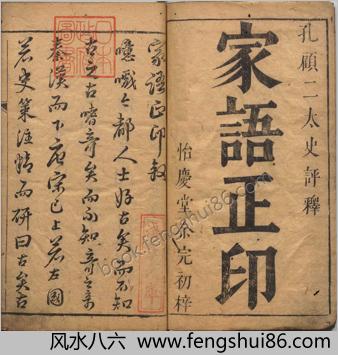 孔顧二太史評釋
家語正印
怡慶堂余完初梓
家語正印敘
噫嘻今都人士好古矣而不知
古之古嗜奇矣而不知奇之奇
秦漢而下唐宋已上若左國
若史策注精而研曰古矣古
book.fengshui86.com
风水八六 www.fengshui86.com